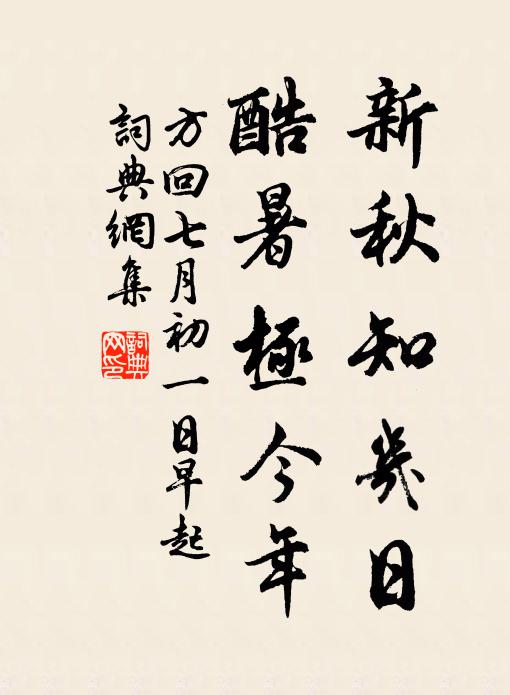 新秋知幾日
酷暑極今年
方回七月初一日早起
詞典網集
詞典網印